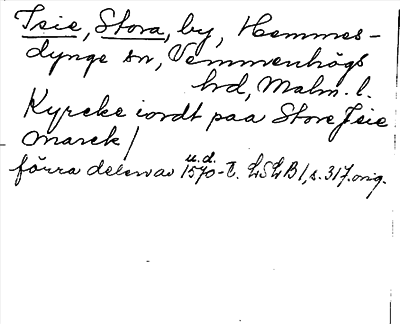 Isie, Stora, by, Hemmes-
dynge sn, Vemmenhögs
hd, Malm. l.
Kyrcke iordt paa Store Jsie
marck/
förra delen av u.d. 1570-t. LSLB 1, s. 317. orig.